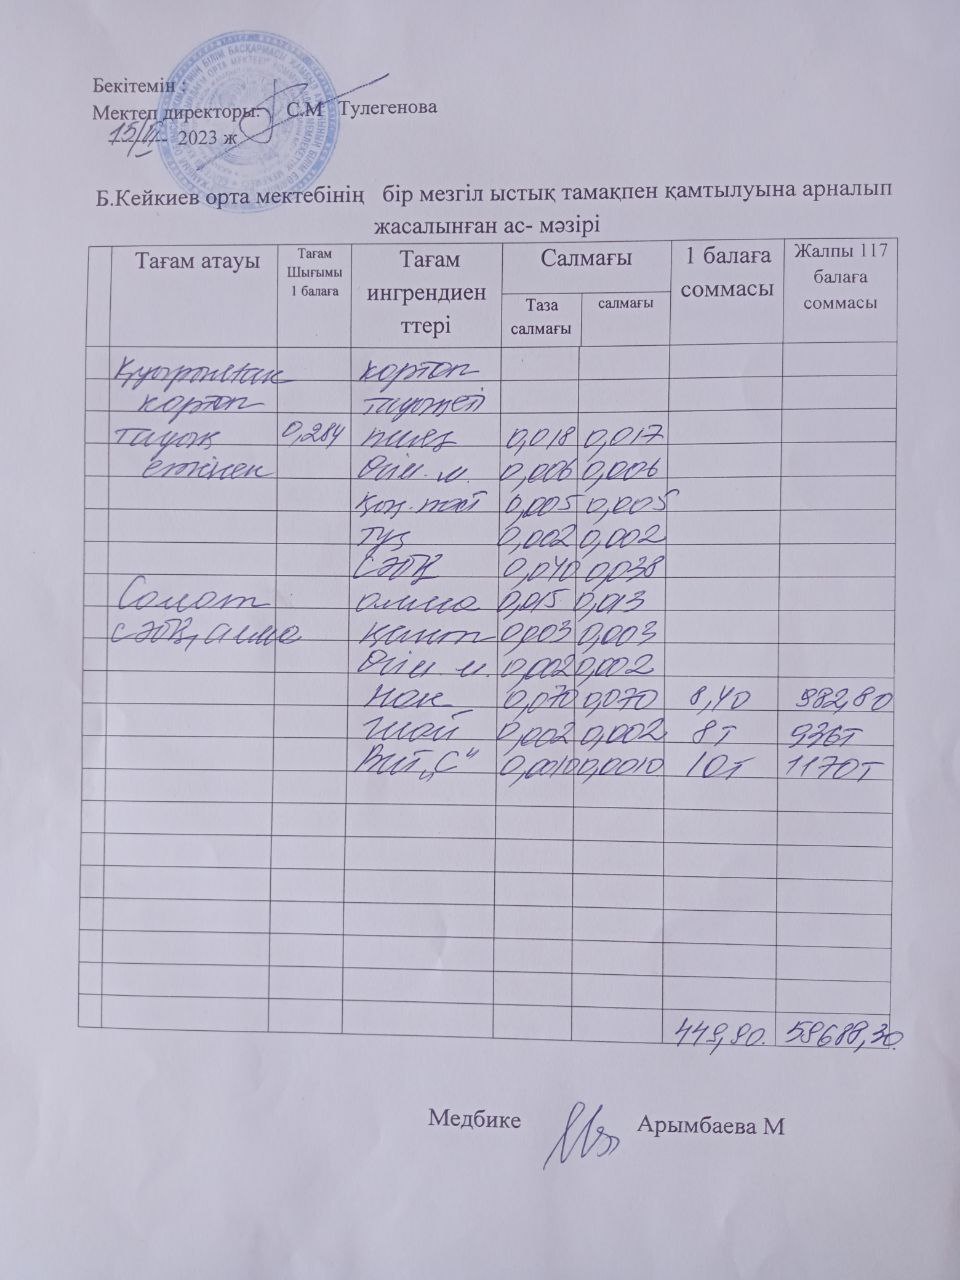 Бекітемін :
Мектеп директоры: С.М Тулегенова
2023 ж
Б.Кейкиев орта мектебінің бір мезгіл ыстық тамақпен қамтылуына арналып
жасалынған ас- мәзірі
Тағам атауы Тағам Шығымы 1 балаға Тағам ингрендиен ттері Салмағы 1 балаға соммасы Жалпы 117 балаға соммасы
Таза салмағы салмағы
Қуырылған картоп
картоп
тауық 0,284 пияз 0,018 0,017
етімен Өсім. м. 0,006 0,006
қою. паст 0,005 0,005
тұз 0,002 0,002
сәбіз 0,040 0,038
Салат алма 0,015 0,013
сәбіз, алма қант 0,003 0,003
Өсім м. 0,002 0,002
нан 0,070 0,070 8,40 982,80
Шай 0,002 0,002 8т 936т
Вит "С" 0,0010 0,0010 10т 1170т
449,90. 58688,30.
Медбике Арымбаева М